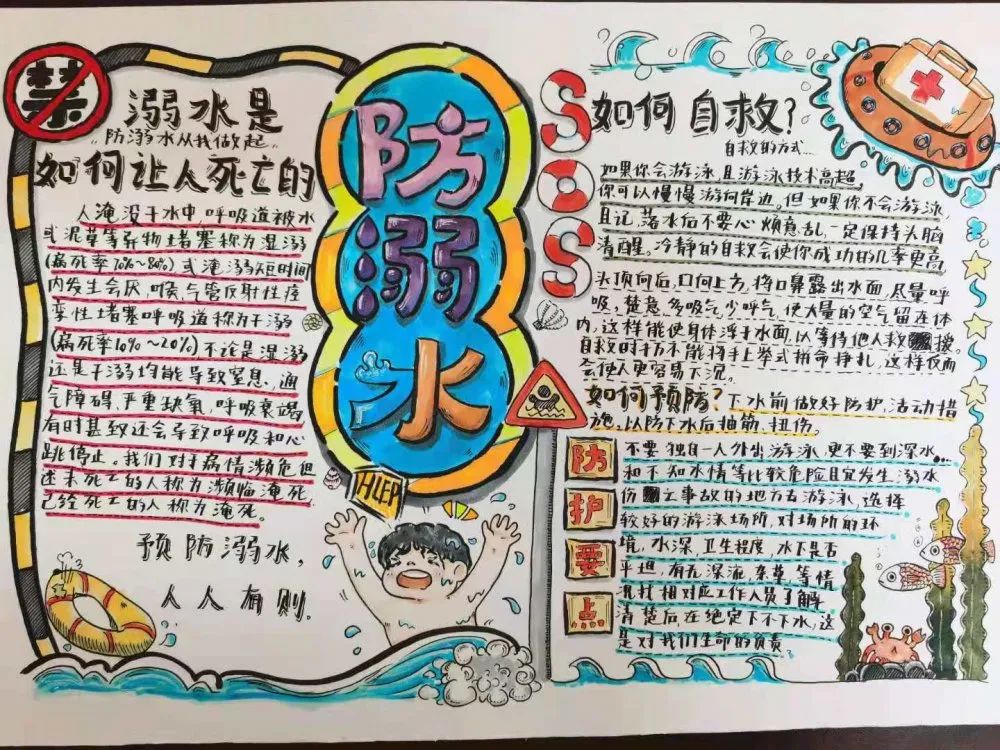 禁
溺水是
"防溺水从我做起"
如何让人死亡的
人淹没于水中呼吸道被水
或泥草等异物堵塞称为湿溺
(病死率70%~80%)或淹溺短时间
内发生会厌,喉,气管反射性痉
挛性堵塞呼吸道称为干溺
(病死率10%~20%)不论是湿溺
还是干溺均能导致窒息、通
气障碍,严重缺氧,呼吸衰竭
有时甚致还会导致呼吸和心
跳停止。我们对于病情濒危但
还未死亡的人称为濒临淹死
已经死亡的人称为淹死。
预防溺水,
人人有则.
防溺水
HLEP
SOS
如何自救?
自救的方式...
如果你会游泳且游泳技术高超,
你可以慢慢游向岸边。但如果你不会游泳,
且记,落水后不要心烦意乱,一定保持头脑
清醒。冷静的自救会使你成功的几率更高
头顶向后,口向上方,将口鼻露出水面,尽量呼
吸,楚意多吸气,少呼气,使大量的空气留在体
内,这样能使身体浮于水面,以等待他人救援。
自救时扐不能将手上举式拼命挣扎,这样反而
会使人更容易下沉。
如何预防?下水前做好防护,活动措
施,以防下水后抽筋、扭伤。
防护要点
不要独自一人外出游泳,更不要到深水...
和不知水情等比较危险且宜发生溺水
伤之事故的地方去游泳,选择
较好的游泳场所,对场所的环
境,水深,卫生程度,水下是否
平坦,有无深流,杂草,等情
况找相对应工作人员了解
清楚后,在绝定下不下水,这
是对我们生命的负责